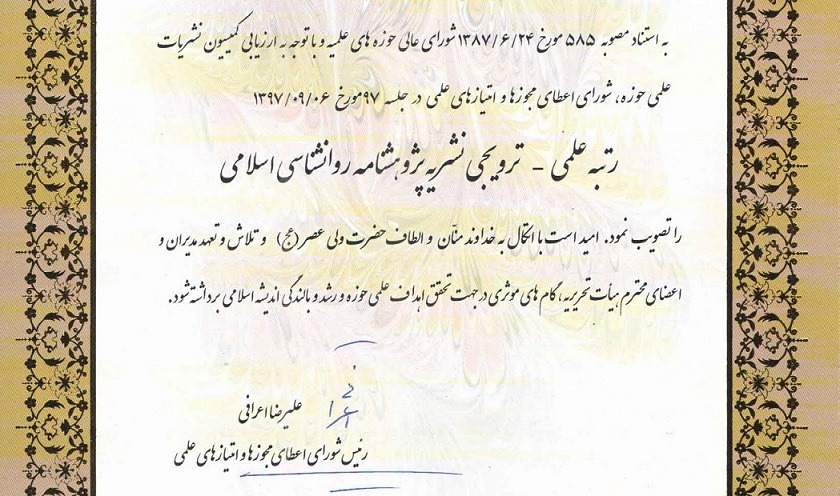 به استناد مصوبه ۵۸۵ مورخ ۱۳۸۷/۶/۲۴ شورای عالی حوزه های علمیه و با توجه به ارزیابی کمیسیون نشریات
علمی حوزه، شورای اعطای مجوزها و امتیازهای علمی در جلسه ۹۷ مورخ ۱۳۹۷/۰۹/۰۶
رتبه علمی - ترویجی نشریه پژوهشنامه روانشناسی اسلامی
را تصویب نمود. امید است با اتکال به خداوند منّان و الطاف حضرت ولی عصر (عج) و تلاش و تعهد مدیران و
اعضای محترم هیأت تحریریه، گام های موثری در جهت تحقق اهداف علمی حوزه و رشد و بالندگی اندیشه اسلامی برداشته شود.
علیرضا اعرافی
رئیس شورای اعطای مجوزها و امتیازهای علمی